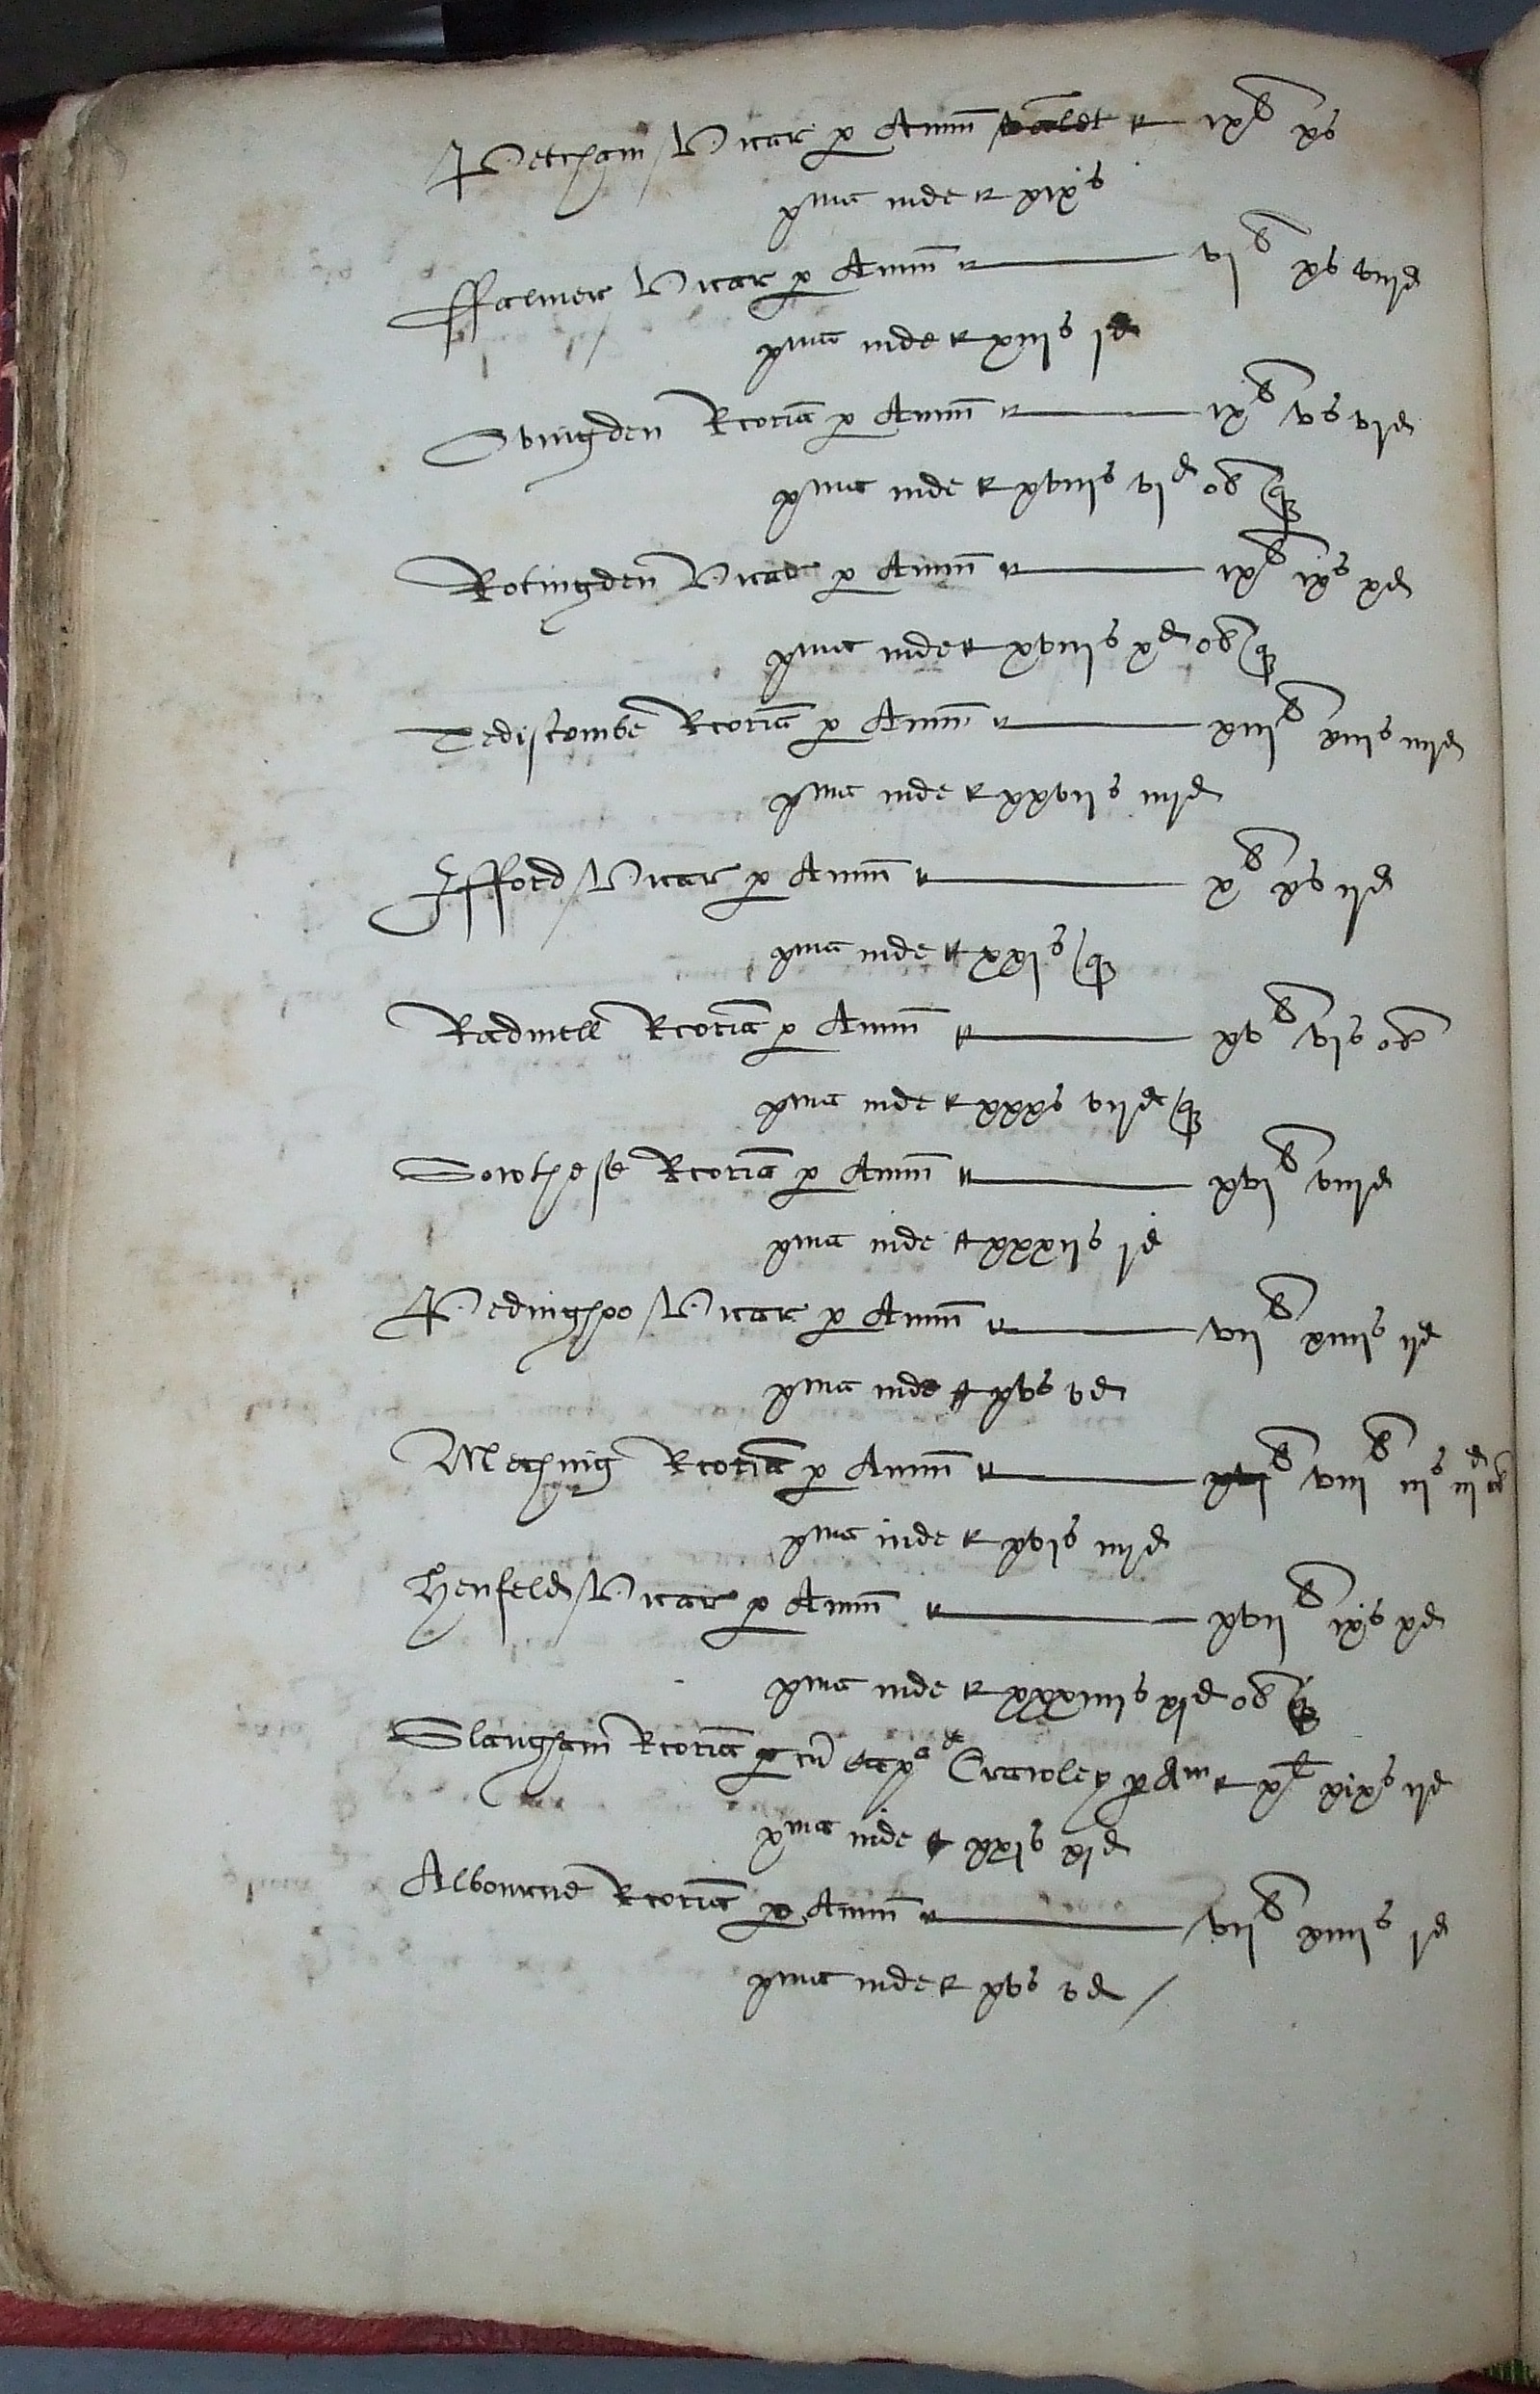 Petcham Vicar p Annũ valet — ixli xs
xma inde xixs
ffalmer Vicar p Annũ — vili xs viijd
xma inde xiijs jd
Ovingden Rcoria p Annũ — ixli vs vjd
xma inde xviijs vjd ob q
Rotingden Vicar p Annũ — ixli ixs xd
xma inde xviijs xd ob q
Tediscombe Rcoria p Annũ — xiijli xiijs iiijd
xma inde xxvijs iiijd
Ifford Vicar p Annũ — xli xs ijd
xma inde xxjs q
Radmell Rcoria p Annũ — xvli vjs ob
xma inde xxxs vijd q
Sowthese Rcoria p Annũ — xvjli viijd
xma inde xxxijs jd
Pedinghoo Vicar p Annũ — vijli xiiijs ijd
xma inde xvs vd
Meching Rcoria p Annũ — xvjli viijli iijs iijd ob
xma inde xvjs iiijd
Henfeld Vicar p Annũ — xvijli ixs xd
xma inde xxxiiijs xjd ob q
Slaugham Rcoria p cũ capa de Crawley p Am xli xixs ijd
xma inde xxjs xjd
Albourne Rcoria p Annũ — vijli xiiijs jd
xma inde xvs vd /